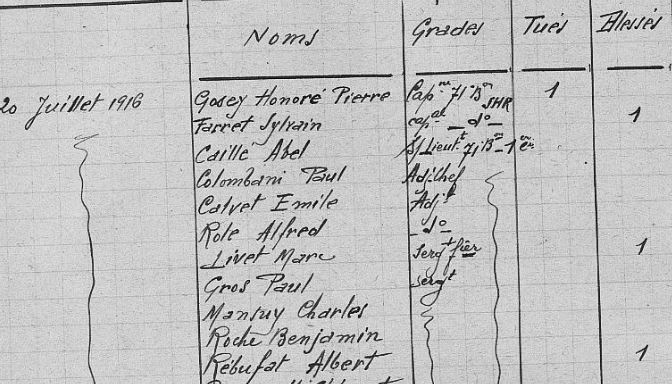 Noms Grades Tués Blessés
20 Juillet 1916 Gosey Honoré Pierre Capne 71e Bon SHR 1
Farret Sylvain capal _ do _ 1
Caille Abel S/Lieutt 71 Bon - 1 ère
Colombani Paul Adj. Chef
Calvet Emile Adjt
Role Alfred _ do _
Livet Marc Sergt fier 1
Gros Paul sergt
Mansuy Charles
Roche Benjamin
Rébufat Albert 1